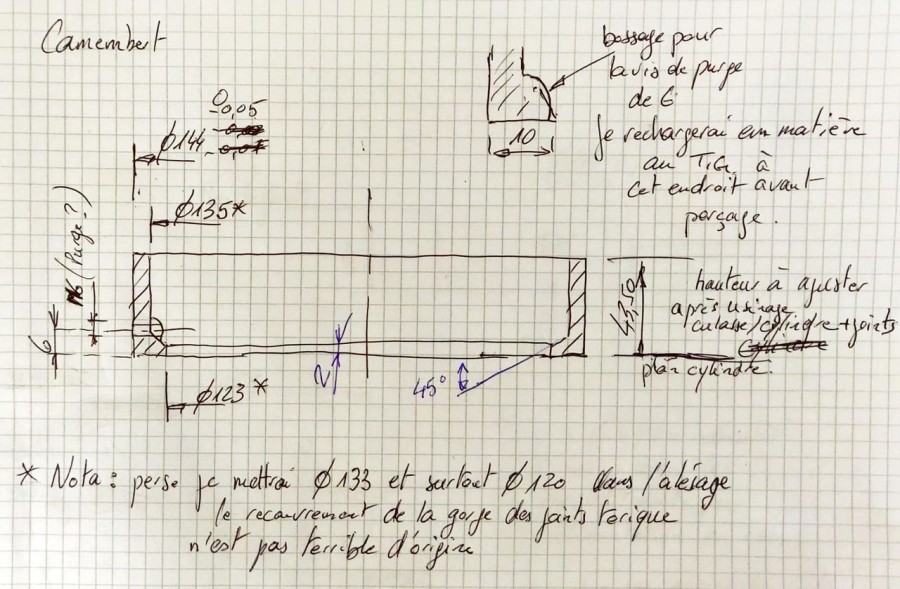 Camembert
bossage pour
la vis de purge
de 6
Je rechargerai en matière
au TIG à
cet endroit avant
perçage.
10
0
-0,05
Ø144
Ø135*
M6 (Purge?)
6
2
45°
Ø123*
43,50
hauteur à ajuster
après usinage
culasse/cylindre + joints
plan cylindre.
* Nota : perso je mettrai Ø133 et surtout Ø120 dans l'alésage
le recouvrement de la gorge des joints torique
n'est pas terrible d'origine